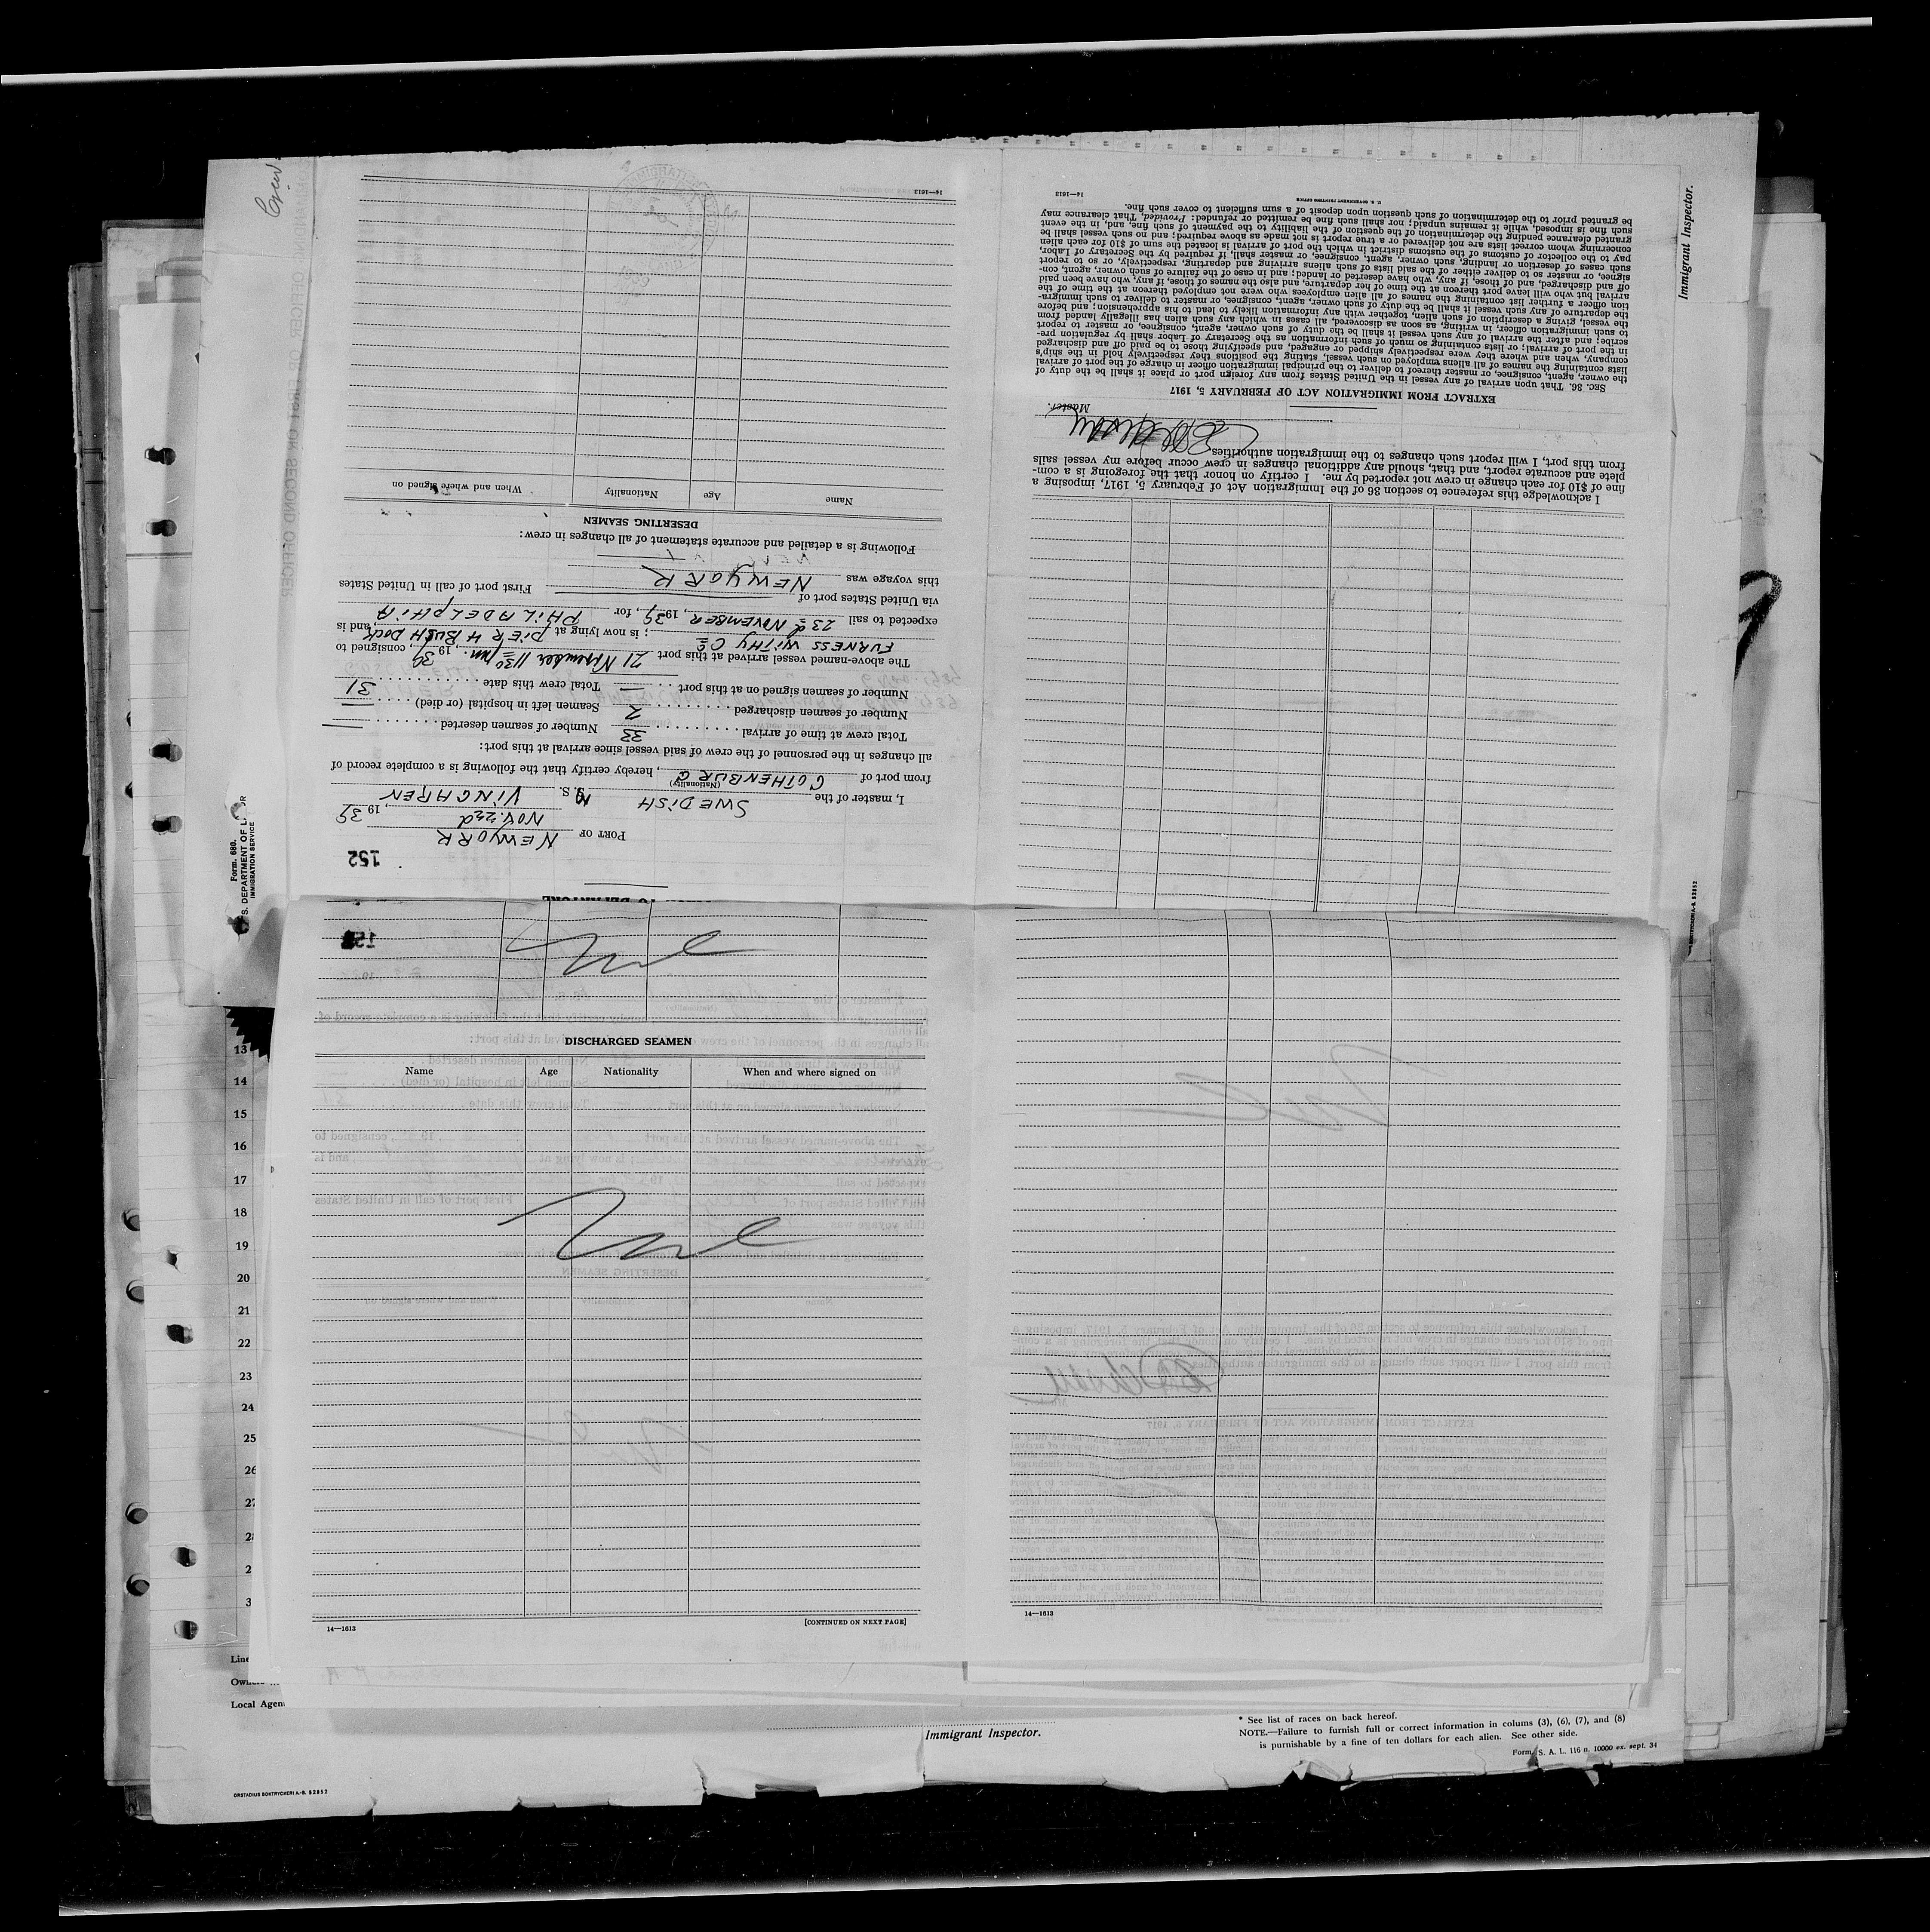 Crew
Form. 680.
S. DEPARTMENT OF L OR
IMMIGRATION SERVICE
152
PORT OF NEWYORK
NOV. 22d, 1939
I, master of the SWEDISH M S. VINGAREN
(Nationality)
from port of GOTHENBURG, hereby certify that the following is a complete record of
all changes in the personnel of the crew of said vessel since arrival at this port:
Total crew at time of arrival 33 Number of seamen deserted —
Number of seamen discharged 2 Seamen left in hospital (or died) —
Number of seamen signed on at this port — Total crew this date 31
The above-named vessel arrived at this port 21 November 1130 pm., 1939, consigned to
FURNESS WITHY Co; is now lying at PIER 4 BUSH DOCK, and is
expected to sail 23d NOVEMBER, 1939, for PHILADELPHIA,
via United States port of — First port of call in United States
this voyage was NEWYORK
Following is a detailed and accurate statement of all changes in crew:
DESERTING SEAMEN
Name Age Nationality When and where signed on
14—1613
I acknowledge this reference to section 36 of the Immigration Act of February 5, 1917, imposing a
fine of $10 for each change in crew not reported by me. I certify on honor that the foregoing is a com-
plete and accurate report, and that, should any additional changes in crew occur before my vessel sails
from this port, I will report such changes to the immigration authorities.
Master.
EXTRACT FROM IMMIGRATION ACT OF FEBRUARY 5, 1917
SEC. 36. That upon arrival of any vessel in the United States from any foreign port or place it shall be the duty of
the owner, agent, consignee, or master thereof to deliver to the principal immigration officer in charge of the port of arrival
lists containing the names of all aliens employed on such vessel, stating the positions they respectively hold in the ship's
company, when and where they were respectively shipped or engaged, and specifying those to be paid off and discharged
in the port of arrival; or lists containing so much of such information as the Secretary of Labor shall by regulation pre-
scribe; and after the arrival of any such vessel it shall be the duty of such owner, agent, consignee, or master to report
to such immigration officer, in writing, as soon as discovered, all cases in which any such alien has illegally landed from
the vessel, giving a description of such alien, together with any information likely to lead to his apprehension; and before
the departure of any such vessel it shall be the duty of such owner, agent, consignee, or master to deliver to such immigra-
tion officer a further list containing the names of all alien employees who were not employed thereon at the time of the
arrival but who will leave port thereon at the time of her departure, and also the names of those, if any, who have been paid
off and discharged, and of those, if any, who have deserted or landed; and in case of the failure of such owner, agent, con-
signee, or master so to deliver either of the said lists of such aliens arriving and departing, respectively, or so to report
such cases of desertion or landing, such owner, agent, consignee, or master shall, if required by the Secretary of Labor,
pay to the collector of customs of the customs district in which the port of arrival is located the sum of $10 for each alien
concerning whom correct lists are not delivered or a true report is not made as above required; and no such vessel shall be
granted clearance pending the determination of the question of the liability to the payment of such fine, and, in the event
such fine is imposed, while it remains unpaid; nor shall such fine be remitted or refunded: Provided, That clearance may
be granted prior to the determination of such question upon deposit of a sum sufficient to cover such fine.
U. S. GOVERNMENT PRINTING OFFICE
14—1613
Immigrant Inspector.
DISCHARGED SEAMEN
Name Age Nationality When and where signed on
14—1613
[CONTINUED ON NEXT PAGE]
14—1613
13
14
15
16
17
18
19
20
21
22
23
24
25
26
Line
Local Agen
Immigrant Inspector.
* See list of races on back hereof.
NOTE.—Failure to furnish full or correct information in colums (3), (6), (7), and (8)
is punishable by a fine of ten dollars for each alien. See other side.
Form. S. A. L. 116 n. 10000 ex. sept. 34
ORSTADIUS BOKTRYCKERI A.-B. 52852